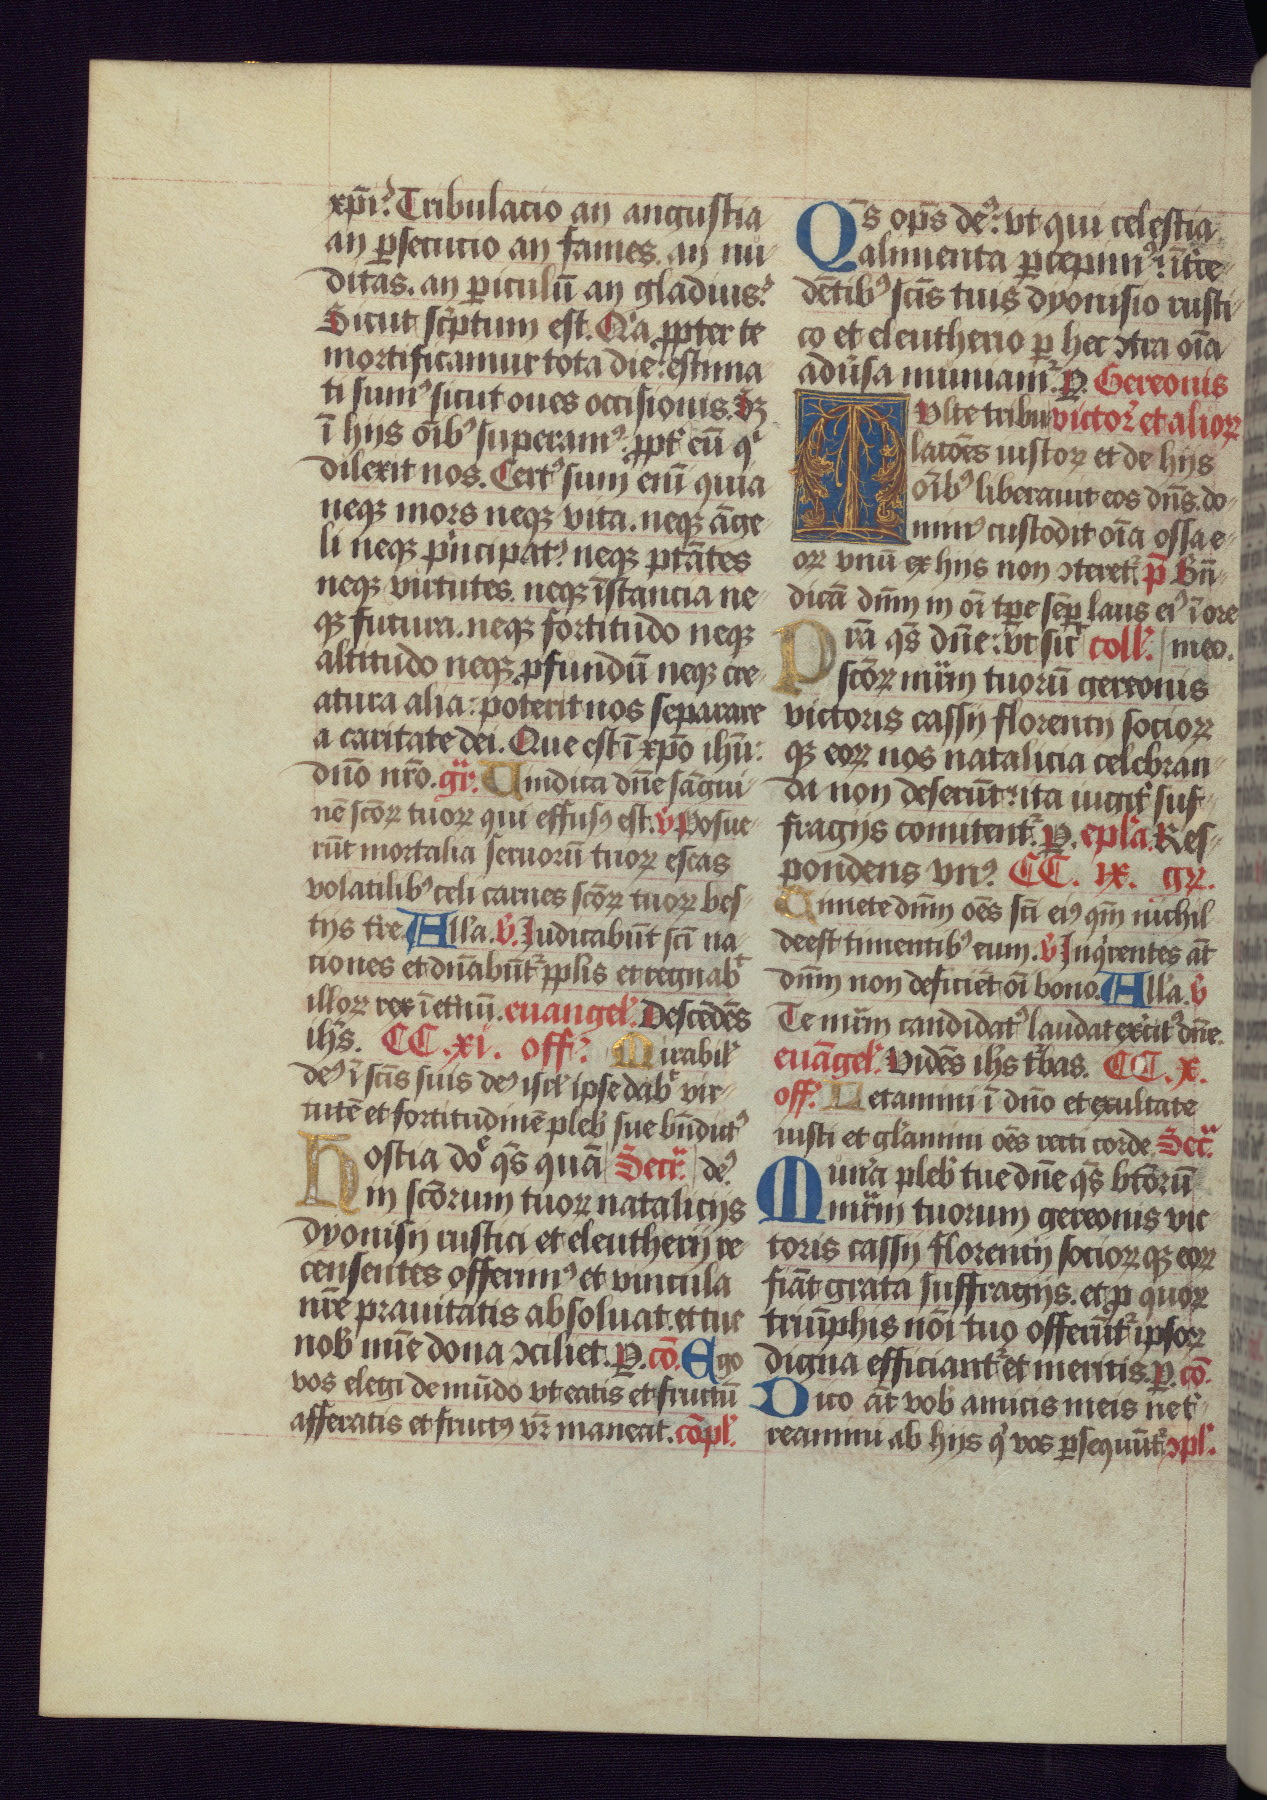 xp̄i? Tribulacio an angustia
an ꝑsecucio an fames. an nu-
ditas. an ꝑiculū an gladius?
Sicut sc̓ptum est. Qꝛa ꝓpter te
mortificamur tota die: estima
ti sumꝰ sicut oues occisionis. Sꝫ
ī hijs oīb̓ꝰ superamꝰ: ꝓpt̓ eū qͥ
dilexit nos. Certꝰ sum enī quia
neqꝫ mors neqꝫ vita. neqꝫ āge-
li neqꝫ pͥncipatꝰ neqꝫ ptāntes
neqꝫ virtutes. neqꝫ īstancia ne-
qꝫ futura. neqꝫ fortitudo neqꝫ
altitudo neqꝫ ꝓfundū neqꝫ cre-
atura alia: poterit nos separare
a caritate dei. Que est ī xp̄o ih̄u:
dn̄o nr̄o. gr̄. Vindica dn̄e sāgui
nē sc̄oꝝ tuoꝝ qui effusꝰ est. v̄ Posue-
rūt mortalia seruorū tuoꝝ escas
volatilibꝰ celi carnes sc̄oꝝ tuoꝝ bes-
tijs tr̄e. All̓a. v̄. Judicabūt sc̄i na-
ciones et dn̄abūt̉ ꝓpl̓is et regnabͭ
illoꝝ rex ī et̓nū. euangel̓. Descēdēs
ih̄s. CC. xi. off̉. Mirabil̓
deꝰ ī sc̄is suis deꝰ isrl̓ ipse dabͭ vir-
tutē et fortitudinē pleb̓ sue bn̄dictꝰ
Hostia dn̄e q̄s quā Secr̉. deꝰ
in sc̄orum tuoꝝ natalicijs
dyonisij rustici et eleutherij re
censentes offerimꝰ et vincula
nr̄e prauitatis absoluat. et tue
nob̓ mīe dona ꝯciliet. P̱. cō. Ego
vos elegi de mūdo vt eatis et fructū
afferatis et fructꝰ vr̄ maneat. cōpl̓.
Qs̄ oꝑs deꝰ: vt qui celestia
alimenta ꝑcepimꝰ: īt̓ce-
dētibꝰ sc̄is tuis dyonisio rusti-
co et eleutherio ꝑ hec ꝯtra oīa
adūsa muniam̉. P̱. Gereonis
Multe tribu victor̉ et alioꝝ
lacōes iustoꝝ et de hijs
oīb̓ꝰ liberauit eos dn̄s. do-
minꝰ custodit oīa ossa e-
oꝝ vnū ex hijs non ꝯteret̉. p̄ Bn̄-
dicā dn̄m in oī tꝑe sēꝑ laus eiꝰ ī ore
Prā q̄s dn̄e: vt sic̓ coll̓. meo.
sc̄oꝝ mr̄im tuorū gereonis
victoris cassij florencij socioꝝ
qꝫ eoꝝ nos natalicia celebran-
da non deserūt: ita iugit̓ suf-
fragijs comitent̉. P̱. epl̓a. Res-
pondens vnꝰ CC. ix. gr̄.
Timete dn̄m oēs sc̄i eiꝰ qm̄ nichil
deest timentibꝰ eum. v̄ Inqͥrentes āt
dn̄m non deficiēt oī bono. All̓a. v̄
Te mr̄im candidatꝰ laudat exͬcitꝰ dn̄e.
euāgel̓. Vidēs ih̄s t̓bas. CC. x.
off̉. Letamini ī dn̄o et exultate
iusti et gl̓amini oēs recti corde. Secr̉
Munͬa pleb̓ tue dn̄e q̄s bt̄orū
mr̄im tuorum gereonis vic
toris cassij florencij socioꝝ qꝫ eoꝝ
fiāt grata suffragijs. et ꝓ quoꝝ
triūphis nōi tuo offerūt̉ ipsoꝝ
digna efficiant̉ et meritis. P̱. cō.
Dico āt vob̓ amicis meis ne t̓-
reamini ab hijs qͥ vos ꝑsequūt̉. ꝯpl̓.